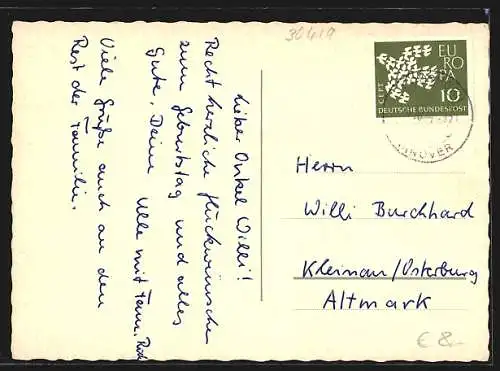 30419
Lieber Onkel Willi!
Recht herzliche Glückwünsche
zum Geburtstag und alles
Gute. Deine Ulle mit Fam.
Viele Grüße auch an den
Rest der Familie.
CEPT
EU
RO
PA
10
DEUTSCHE BUNDESPOST
HANNOVER
Herrn
Willi Burchhard
Kleinau/Osterburg
Altmark
€ 8.-